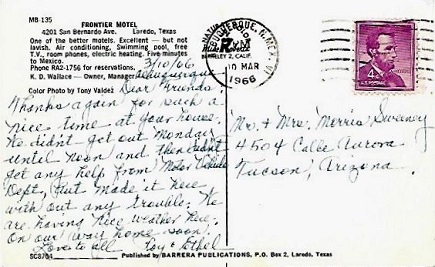 MB-135
FRONTIER MOTEL
4201 San Bernardo Ave. Laredo, Texas
One of the better motels. Excellent — but not
lavish. Air conditioning, Swimming pool, free
T.V., room phones, electric heating. Five minutes
to Mexico.
Phone RA2-1756 for reservations.
K. D. Wallace — Owner, Manager
Color Photo by Tony Valdez
Albuquerque
3/10/66
Dear Friends:
Thanks again for such a
nice time at your house.
We didnt get out Monday
until noon and then didn't
get any help from Motor Vehicle
Dept. But made it here
with out any trouble. We
are having nice weather here.
On our way home soon.
Love to all Roy & Ethel
SC8704
Published by BARRERA PUBLICATIONS, P.O. Box 2, Laredo, Texas
ALBUQUERQUE, N. MEX.
10 MAR
1966
4¢
Mr. & Mrs. Morris Sweaney
4504 Calle Aurora
Tucson, Arizona.